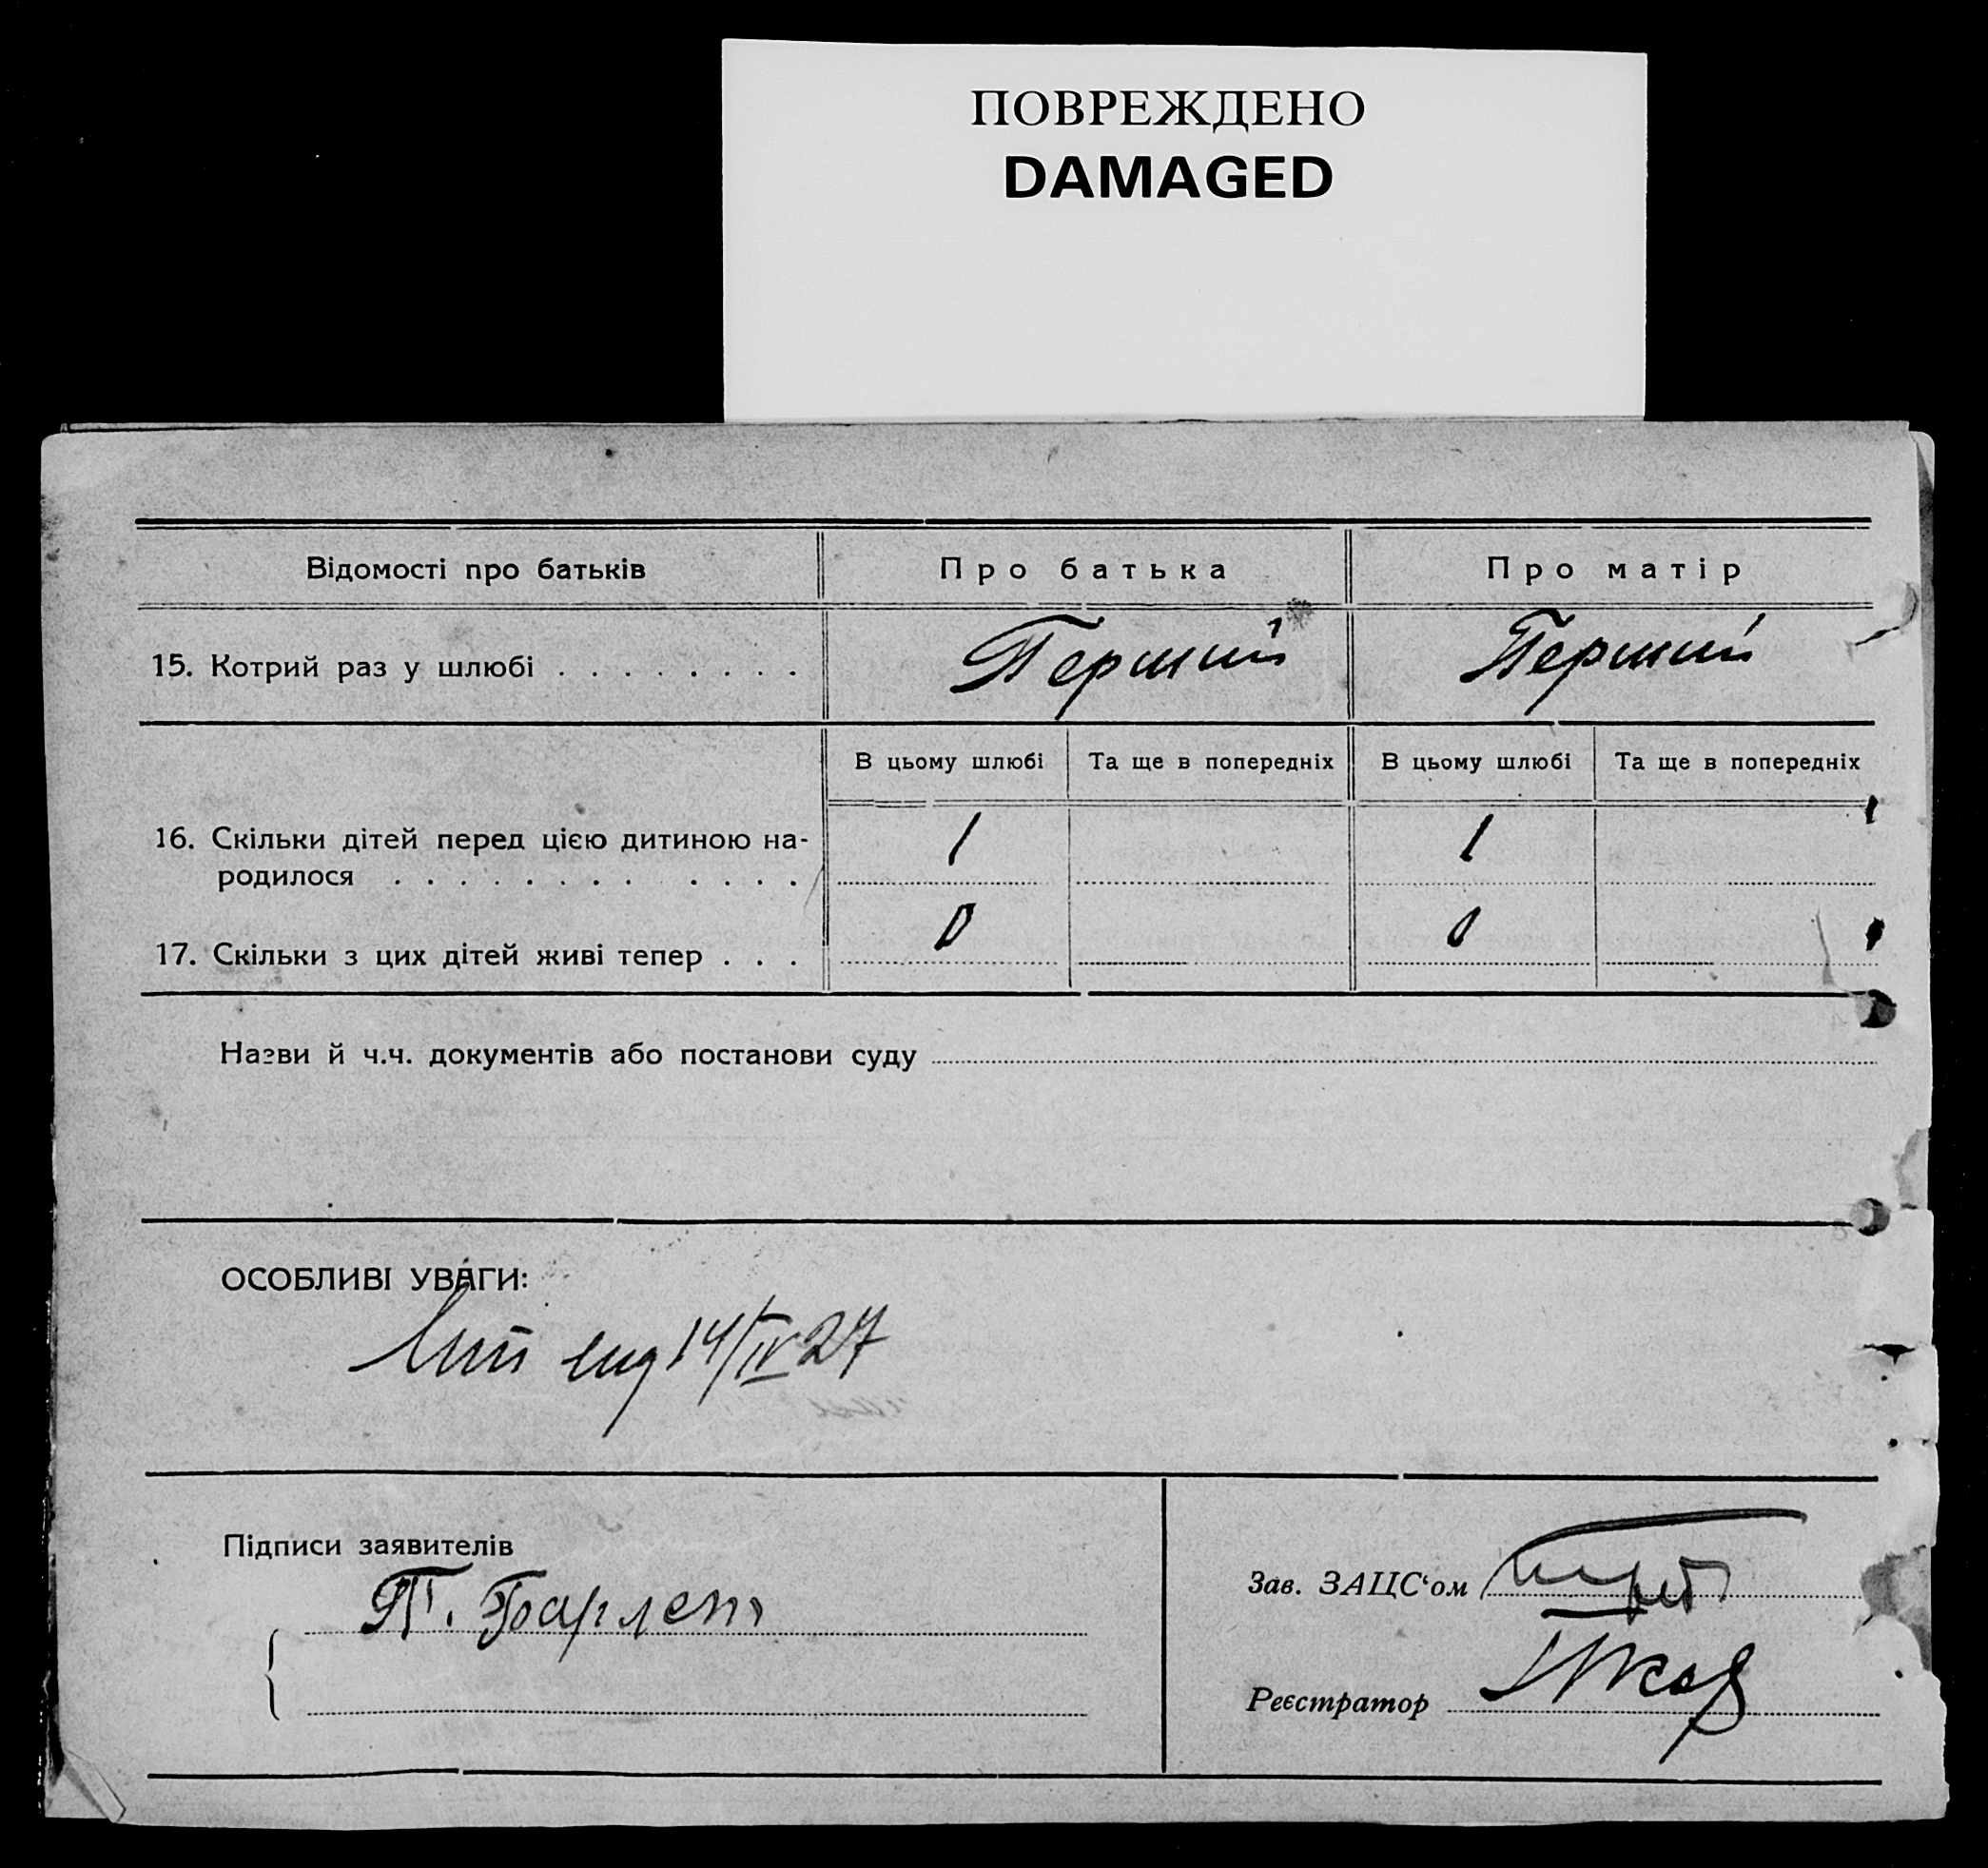 ПОВРЕЖДЕНО
DAMAGED
Відомості про батьків
Про батька
Про матір
15. Котрий раз у шлюбі . . . . . . . .
Перший
Перший
В цьому шлюбі
Та ще в попередніх
В цьому шлюбі
Та ще в попередніх
16. Скільки дітей перед цією дитиною на-
родилося . . . . . . . . . . . .
1
1
17. Скільки з цих дітей живі тепер . . .
0
0
Назви й ч.ч. документів або постанови суду
ОСОБЛИВІ УВАГИ:
14/IV 27
Підписи заявителів
Зав. ЗАЦС‘ом
Реєстратор